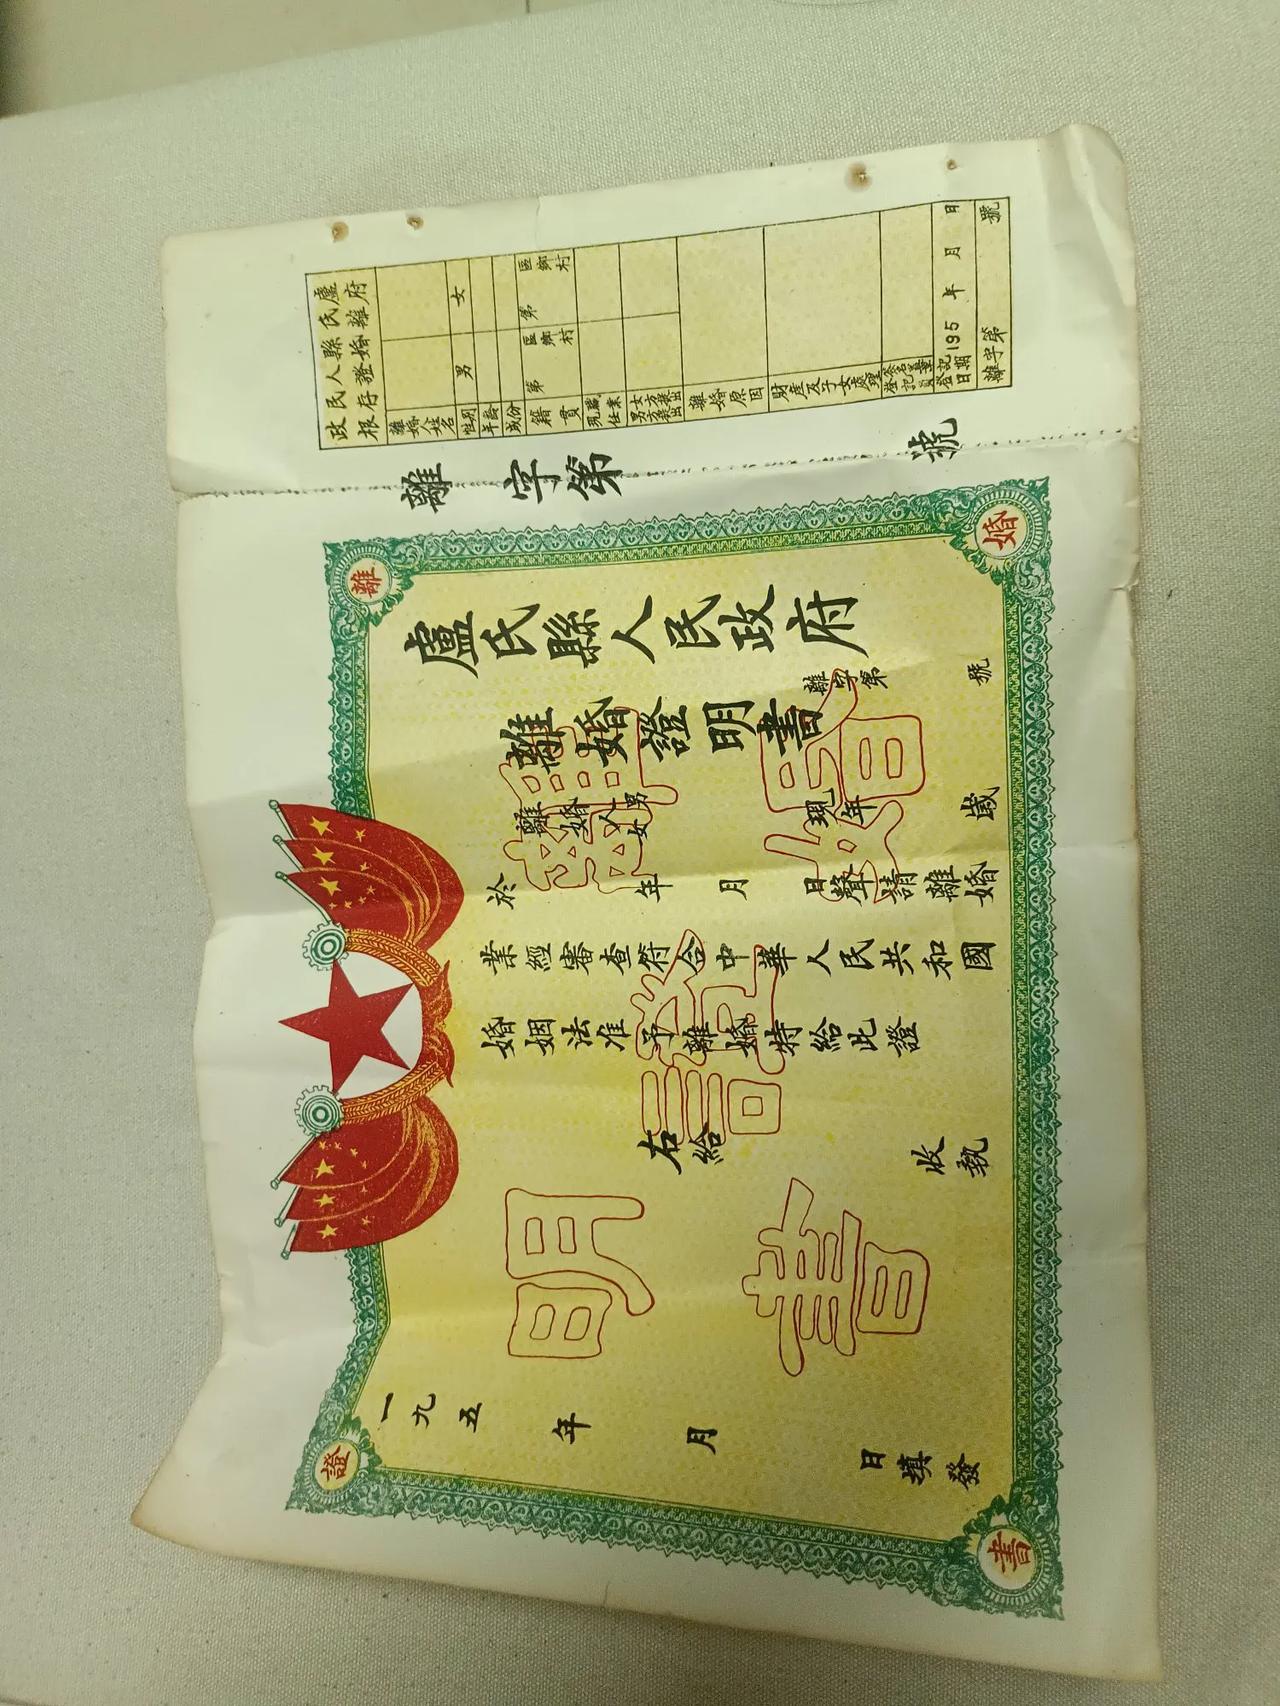 盧氏縣人民政
府離婚證存根
離婚人姓名
性別 男 女
年齡
成份
籍貫 第 區鄉村 第 區鄉村
現任職業
男方提出 女方提出
離婚原因
財產及子女處理
登記員簽名蓋章
登記日期 195 年 月 日
離字第 號
離字第 號
離 婚 證 書
盧氏縣人民政府
離婚證明書
離字第 號
離婚人 男女 現年 歲
於 年 月 日聲請離婚
業經審查符合中華人民共和國
婚姻法准予離婚特給此證
右給 收執
一九五 年 月 日填發
離婚證明書